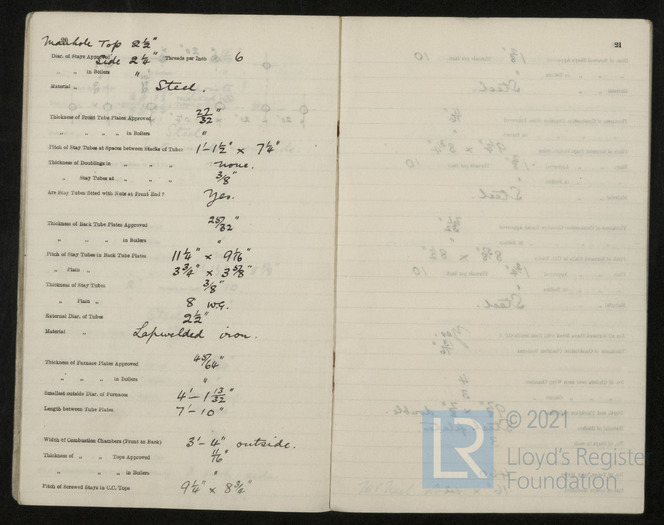 20
Manhole Top 2 1/2"
Diar. of Stays Approved Side 2 1/4" Threads per Inch 6
" " in Boilers "
Material " Steel.
Thickness of Front Tube Plates Approved 27/32"
" " " " in Boilers "
Pitch of Stay Tubes at Spaces between Stacks of Tubes 1'-1 1/2" × 7 1/4"
Thickness of Doublings in " " " none.
" Stay Tubes at " " " 3/8"
Are Stay Tubes fitted with Nuts at Front End? Yes.
Thickness of Back Tube Plates Approved 25/32"
" " " in Boilers "
Pitch of Stay Tubes in Back Tube Plates 11 1/4" × 9 1/16"
" Plain " 3 3/4" × 3 5/8"
Thickness of Stay Tubes 3/8"
" Plain " 8 W.G.
External Diar. of Tubes 2 1/2"
Material " Lapwelded iron.
Thickness of Furnace Plates Approved 45/64"
" " " in Boilers "
Smallest outside Diar. of Furnaces 4'-1 13/32"
Length between Tube Plates 7'-10"
Width of Combustion Chambers (Front to Back) 3'-4" outside.
Thickness of " " Tops Approved
" " " in Boilers "
Pitch of Screwed Stays in C.C. Tops 9 1/4" × 8 3/4"
21
LR
© 2021
Lloyd's Register
Foundation